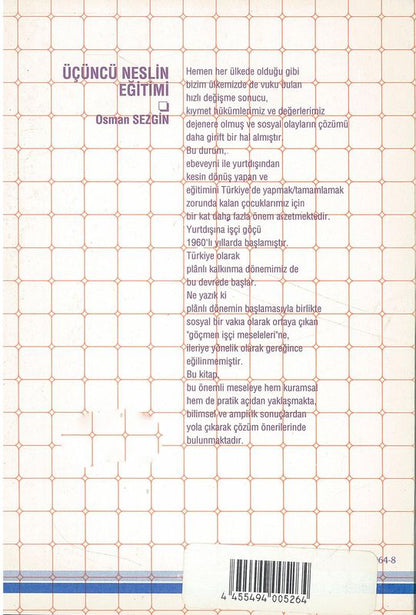 ÜÇÜNCÜ NESLİN
EĞİTİMİ
Osman SEZGİN
Hemen her ülkede olduğu gibi
bizim ülkemizde de vuku bulan
hızlı değişme sonucu,
kıymet hükümlerimiz ve değerlerimiz
dejenere olmuş ve sosyal olayların çözümü
daha girift bir hal almıştır.
Bu durum,
ebeveyni ile yurtdışından
kesin dönüş yapan ve
eğitimini Türkiye'de yapmak/tamamlamak
zorunda kalan çocuklarımız için
bir kat daha fazla önem arzetmektedir.
Yurtdışına işçi göçü
1960'lı yıllarda başlamıştır.
Türkiye olarak
plânlı kalkınma dönemimiz de
bu devrede başlar.
Ne yazık ki
plânlı dönemin başlamasıyla birlikte
sosyal bir vakıa olarak ortaya çıkan
"göçmen işçi meseleleri"ne,
ileriye yönelik olarak gereğince
eğilinmemiştir.
Bu kitap,
bu önemli meseleye hem kuramsal
hem de pratik açıdan yaklaşmakta,
bilimsel ve ampirik sonuçlardan
yola çıkarak çözüm önerilerinde
bulunmaktadır.
64-8
4 455494 005264